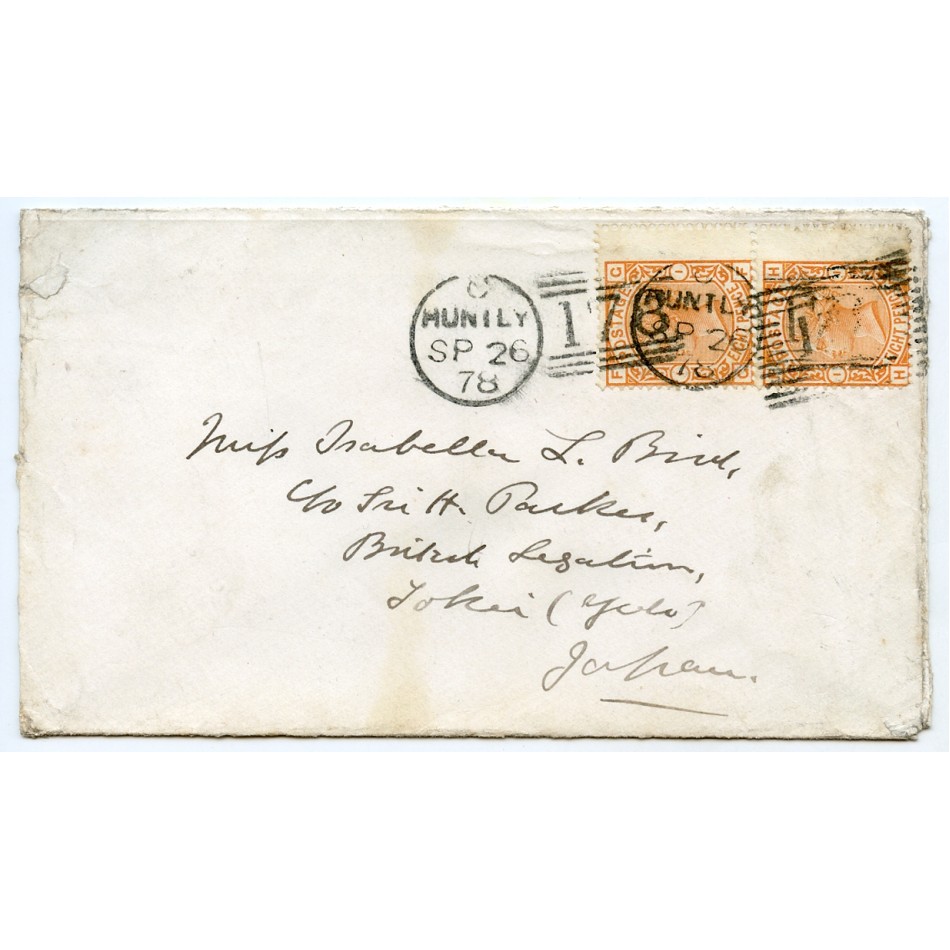 C
HUNTLY
SP 26
78
178
C
HUNTLY
SP 2
78
POSTAGE
EIGHT PENCE
POSTAGE
EIGHT PENCE
Miss Isabella L. Bird,
c/o Sir H. Parkes,
British Legation,
Tokei (Yedo)
Japan.